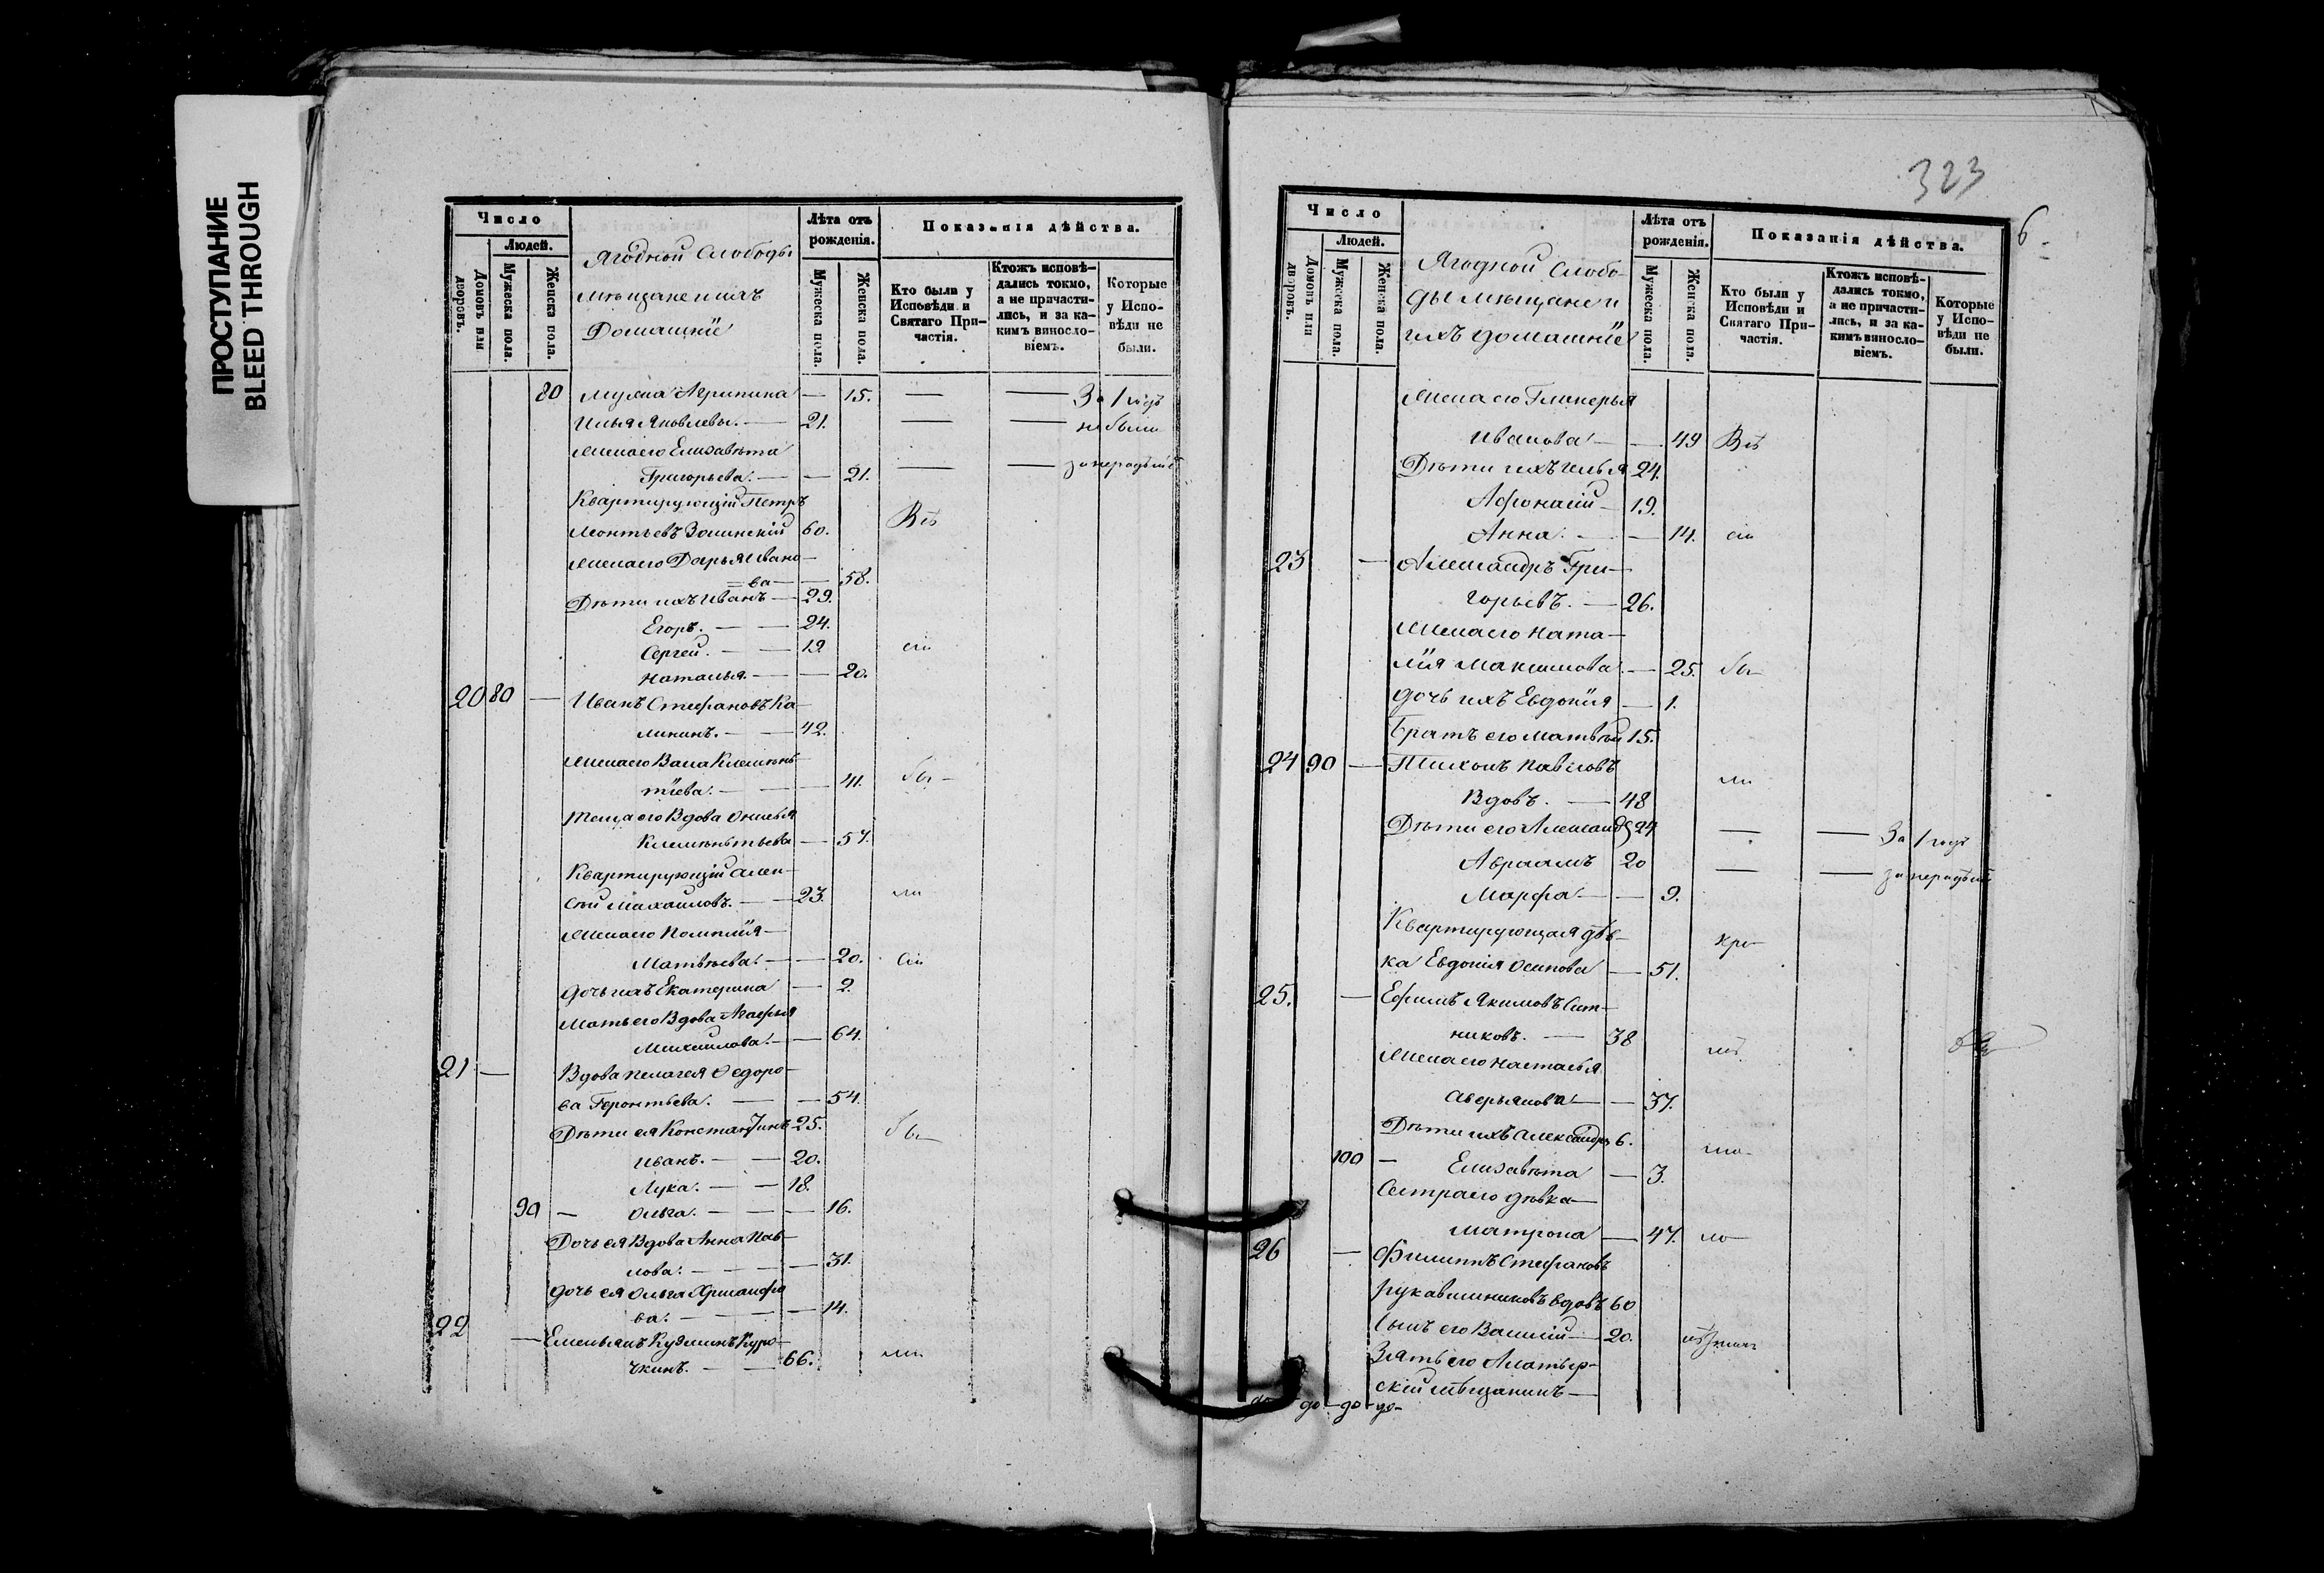 ПРОСТУПАНИЕ
BLEED THROUGH
Число
Людей.
Домовъ или дворовъ.
Мужеска пола.
Женска пола.
Ягодной слободы
мѣщане и ихъ
Домашніе
Лѣта отъ рожденія.
Мужеска пола.
Женска пола.
Показанія дѣйства.
Кто были у Исповѣди и Святаго Причастія.
Ктожъ исповѣдались токмо, а не причастились, и за какимъ винословіемъ.
Которые у Исповѣди не были.
80 Агрипина — 15. — — За 1 годъ
Илья Яковлевы. — 21. — — не были
Жена его Елизавѣта
Григорьева. — — 21. — — за нерадѣніе
Квартирующій Петръ
Леонтьевъ 60. Всѣ
Жена его Дарья Ивано-
ва — — 58.
Дѣти ихъ Иванъ — 29.
Егоръ. — — 24.
Сергей. — — 19. сіи
Наталья. — — 20.
20 80 — Иванъ Стефановъ Ка-
лининъ. — — 42.
Жена его Васа Клементь-
тіева. — — 41. бы-
Теща его Вдова
Клементьева — 57.
Квартирующій Алек-
сѣй Михаиловъ. — — 23. ли
Жена его
Матвѣева. — — 20. сіи
Дочь ихъ Екатерина — 2.
Мать его Вдова Агафья
Михаилова. — — 64.
21 — Вдова Пелагея Федоро-
ва Геронтьева. — — 54.
Дѣти ея Константинъ 25. бы-
Иванъ. — — 20.
Лука. — — 18.
90 — Ольга. — — — 16.
Дочь ея Вдова Анна Пав-
лова. — — — 31.
Дочь ея Ольга
ва. — — — 14.
22 — Емельянъ Кузминъ Куро-
чкинъ. — — 66. ли
323
6
Число
Людей.
Домовъ или дворовъ.
Мужеска пола.
Женска пола.
Ягодной слобо-
ды мѣщане и
ихъ домашніе
Лѣта отъ рожденія.
Мужеска пола.
Женска пола.
Показанія дѣйства.
Кто были у Исповѣди и Святаго Причастія.
Ктожъ исповѣдались токмо, а не причастились, и за какимъ винословіемъ.
Которые у Исповѣди не были.
Жена его Гликерья
Иванова — — 49 Всѣ
Дѣти ихъ Илья 24.
Афонасій — 19.
Анна. — — 14. сіи
23 — Александръ Гри-
горьевъ. — 26.
Жена его Ната-
лія Максимова — 25. бы-
Дочь ихъ Евдокія — 1.
Братъ его Матвѣй 15.
24 90 — Тихонъ Павловъ ли
Вдовъ. — 48
Дѣти его Александръ 24 — — За 1 годъ
Авраамъ 20 — — за нерадѣніе
Марфа — — 9.
Квартирующая дѣв- хри-
ка Евдокія Осипова — 51.
25. — Ефимъ Якимовъ Сит-
никовъ. — 38
Жена его Настасья
Аверьянова — — 37.
Дѣти ихъ Александръ 6.
100 — Елизавѣта — 3.
Сестра его дѣвка
Матрона — 47.
26 — Филиппъ Стефановъ
Рукавишниковъ вдовъ 60
Сынъ его Василій — 20.
Зять его Алатыр-
скій мѣщанинъ —
до- до- до- до-